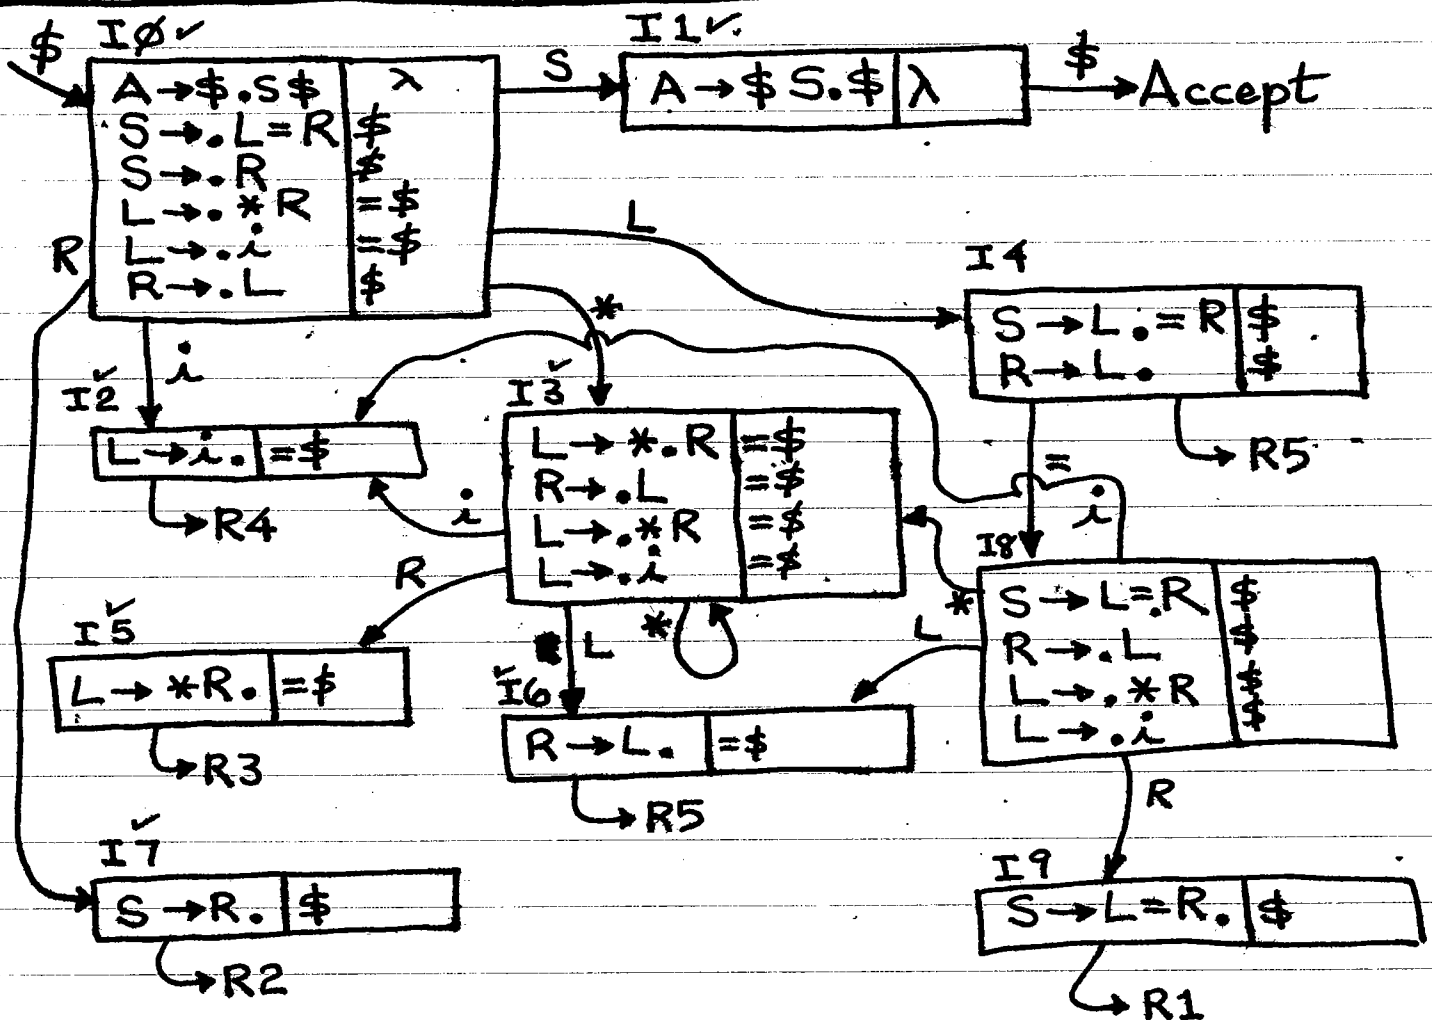 $
IØ✓
A→$.S$ λ
S→.L=R $
S→.R $
L→.*R =$
L→.i =$
R→.L $
S
I1✓
A→$S.$ λ
$
Accept
R
L
I4
S→L.=R $
R→L. $
R5
i
*
I2✓
L→i. =$
R4
I3✓
L→*.R =$
R→.L =$
L→.*R =$
L→.i =$
i
R
*
L
=
i
I8
S→L=.R $
R→.L $
L→.*R $
L→.i $
*
L
I5✓
L→*R. =$
R3
I6✓
R→L. =$
R5
R
I7✓
S→R. $
R2
I9
S→L=R. $
R1